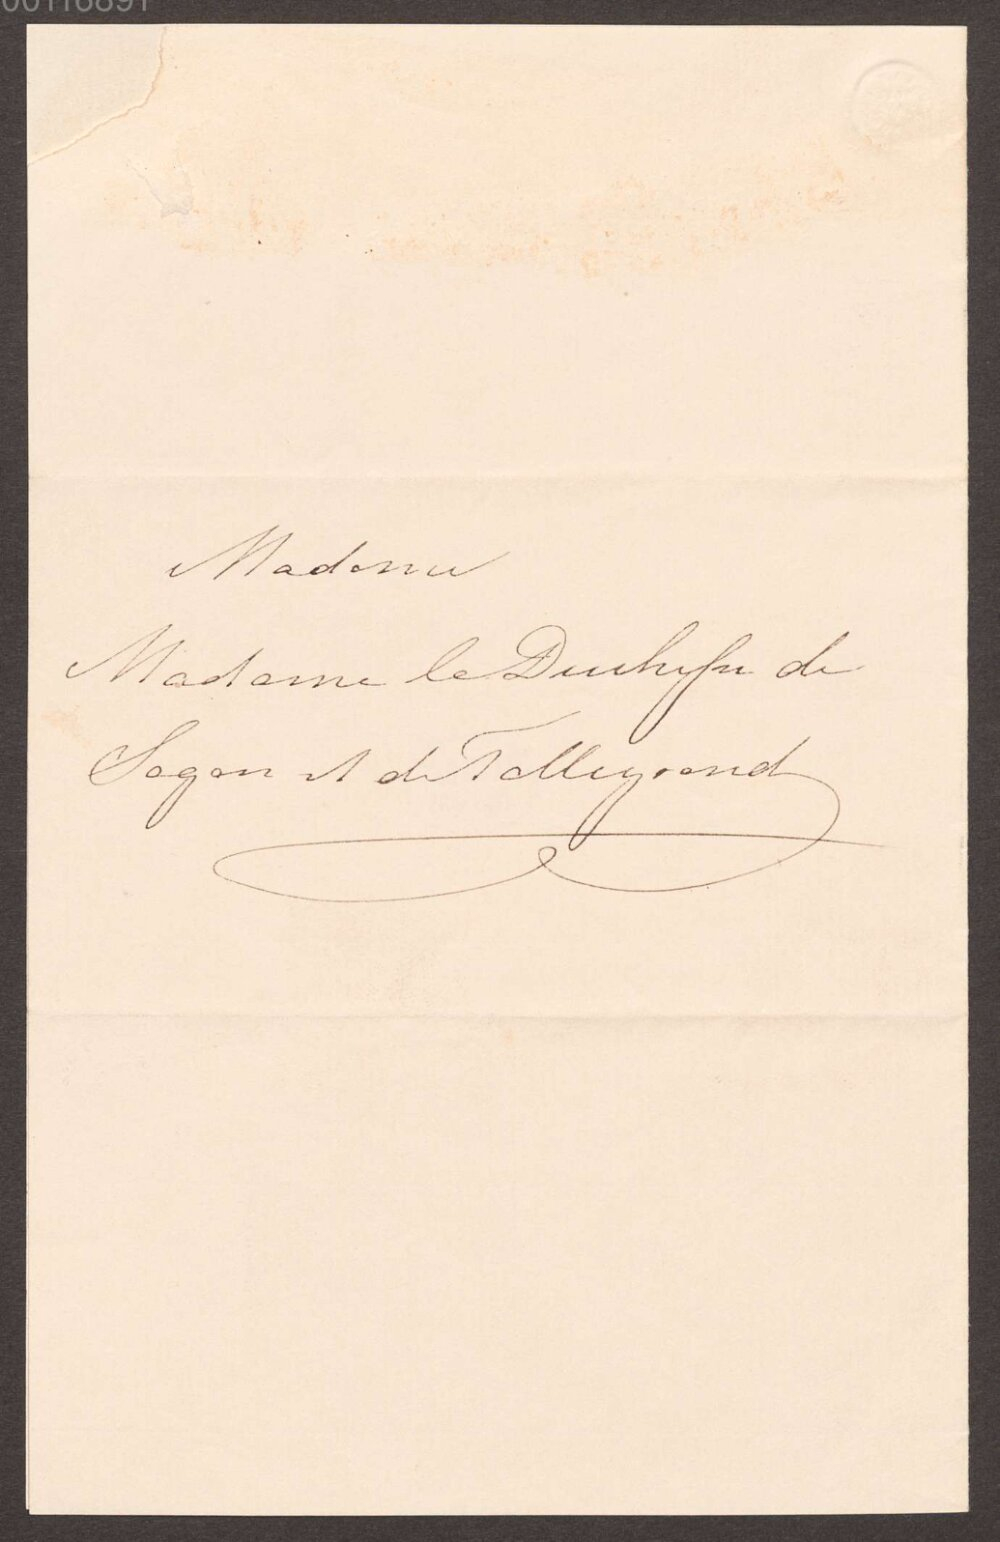 00116891
Madame
Madame la Duchesse de
Sagan et de Talleyrand